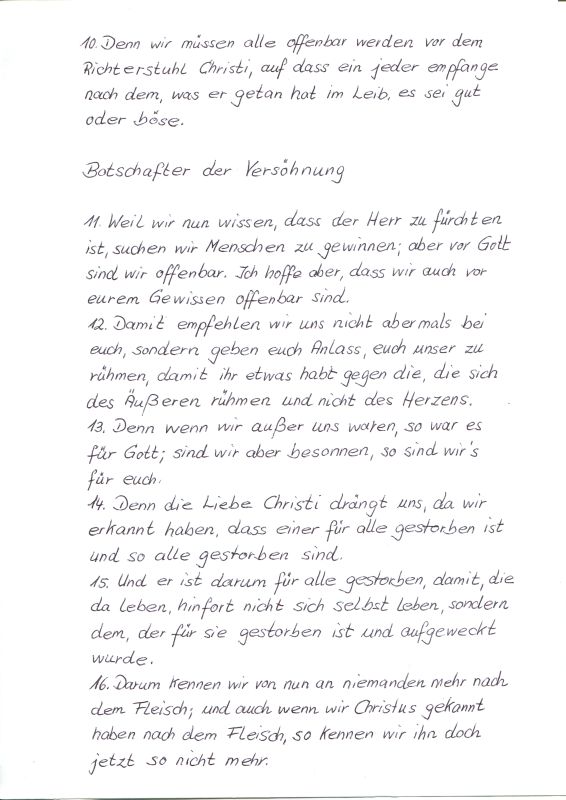 10. Denn wir müssen alle offenbar werden vor dem
Richterstuhl Christi, auf dass ein jeder empfange
nach dem, was er getan hat im Leib, es sei gut
oder böse.
Botschafter der Versöhnung
11. Weil wir nun wissen, dass der Herr zu fürchten
ist, suchen wir Menschen zu gewinnen; aber vor Gott
sind wir offenbar. Ich hoffe aber, dass wir auch vor
eurem Gewissen offenbar sind.
12. Damit empfehlen wir uns nicht abermals bei
euch, sondern geben euch Anlass, euch unser zu
rühmen, damit ihr etwas habt gegen die, die sich
des Äußeren rühmen und nicht des Herzens.
13. Denn wenn wir außer uns waren, so war es
für Gott; sind wir aber besonnen, so sind wir's
für euch.
14. Denn die Liebe Christi drängt uns, da wir
erkannt haben, dass einer für alle gestorben ist
und so alle gestorben sind.
15. Und er ist darum für alle gestorben, damit, die
da leben, hinfort nicht sich selbst leben, sondern
dem, der für sie gestorben ist und aufgeweckt
wurde.
16. Darum kennen wir von nun an niemanden mehr nach
dem Fleisch; und auch wenn wir Christus gekannt
haben nach dem Fleisch, so kennen wir ihn doch
jetzt so nicht mehr.